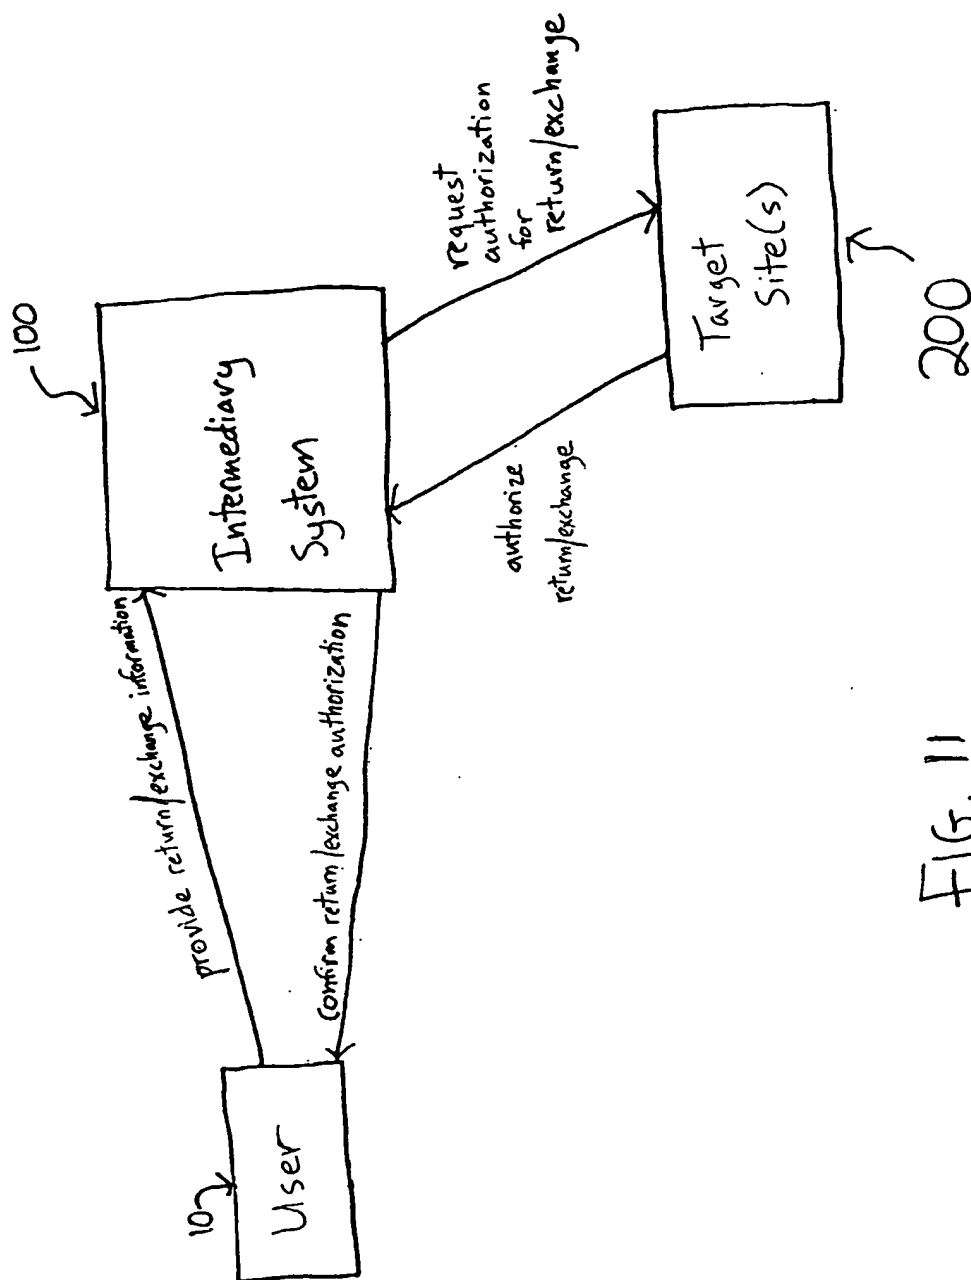 100
Intermediary
System
provide return/exchange information
confirm return/exchange authorization
10
User
request
authorization
for
return/exchange
authorize
return/exchange
Target
Site(s)
200
FIG. 11